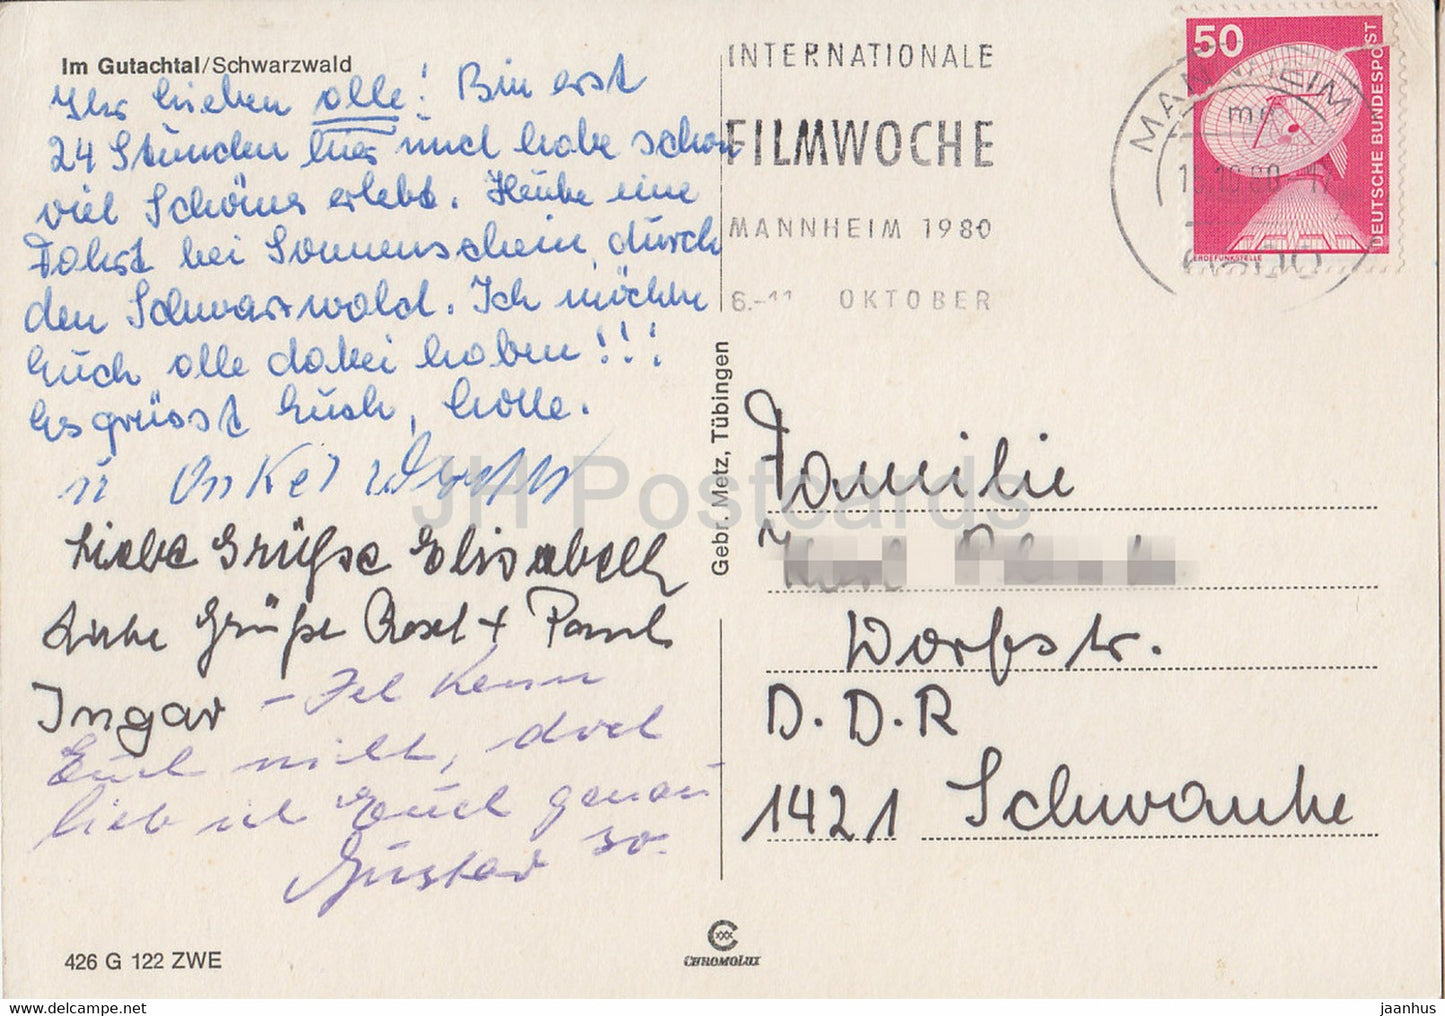 Im Gutachtal/Schwarzwald
Ihr lieben alle! Bin erst
24 Stunden hier und habe schon
viel Schönes erlebt. Heute eine
Fahrt bei Sonnenschein durch
den Schwarzwald. Ich möchte
Euch alle dabei haben!!!
Es grüsst Euch,
u Onkel
Liebe Grüße Elisabeth
Liebe Grüße Rosel + Paul
Ingar - Ich kenn
Euch nicht, doch
lieb ich Euch genau
so.
Gustav
426 G 122 ZWE
INTERNATIONALE
FILMWOCHE
MANNHEIM 1980
6.-11 OKTOBER
MANNHEIM
50
DEUTSCHE BUNDESPOST
ERDEFUNKSTELLE
Gebr. Metz, Tübingen
Familie
Dorfstr.
D.D.R
1421 Schwante
CHROMOLUX
JH Postcards
https://www.delcampe.net
jaanhus